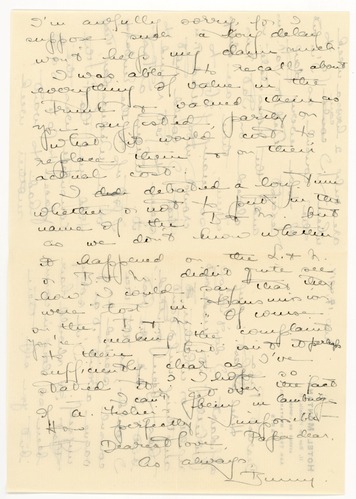 I'm awfully sorry, for I
suppose such a long delay
won't help my claim much.
I was able to recall about
everything of value in the
trunk & valued them as
you suggested, partly on
what it would cost to
replace them & on their
actual cost.
I did debated a long time
whether or not to put in the
name of the but
as we don't know whether
it happened on the L & N.
or didn't quite see
how I could say that they
were lost in transmission
on the Of course
you're making the complaint
to them but isn't it perhaps
sufficiently clear as I've
stated it? I hope so
I can't get over the fact
of a being in Cambridge
How perfectly impossible
Dearest love, Papa dear.
As always